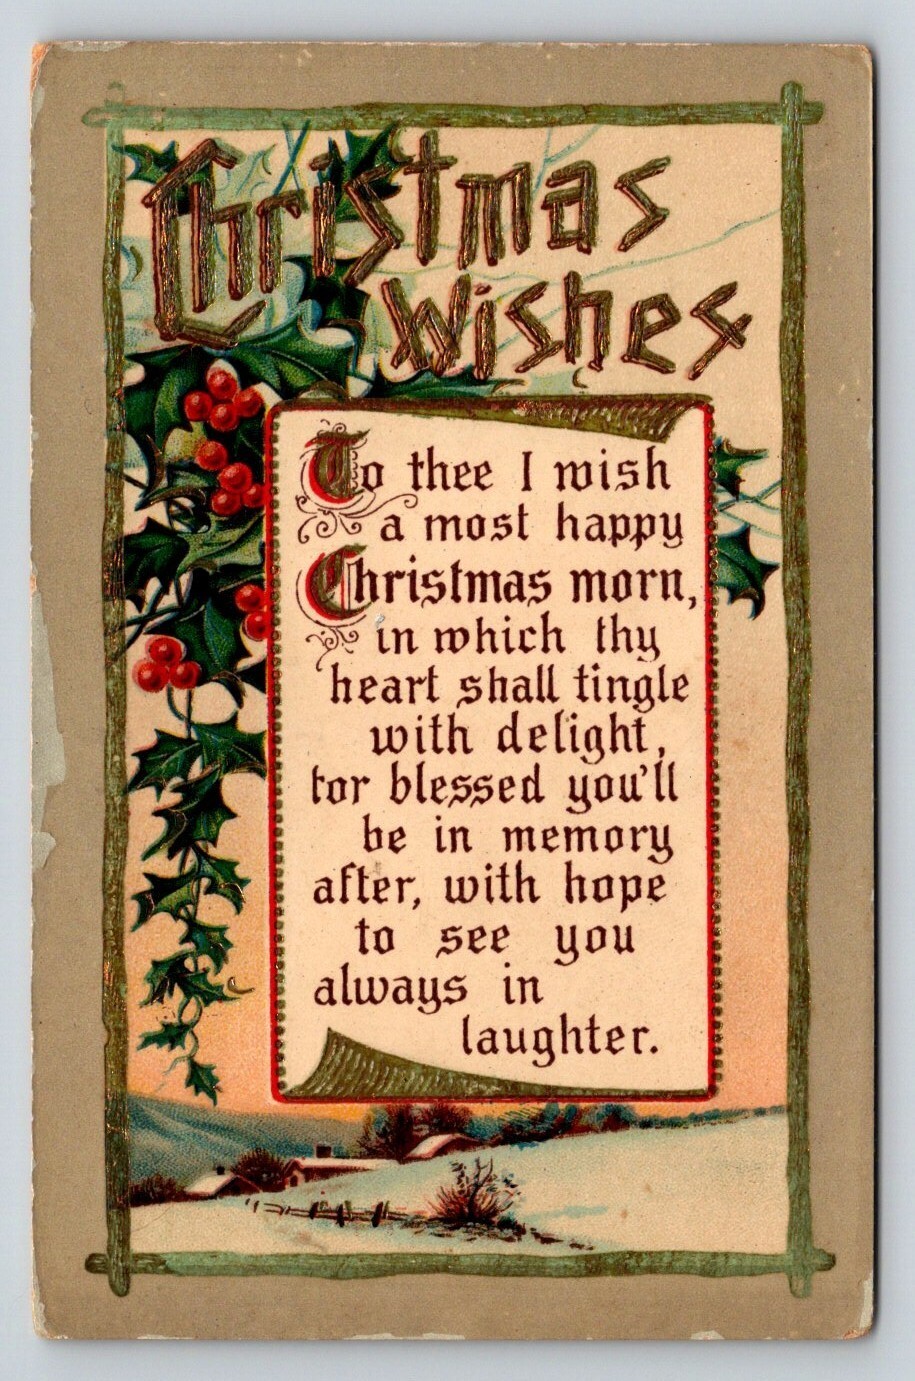 Christmas
Wishes
To thee I wish
a most happy
Christmas morn,
in which thy
heart shall tingle
with delight,
for blessed you'll
be in memory
after, with hope
to see you
always in
laughter.